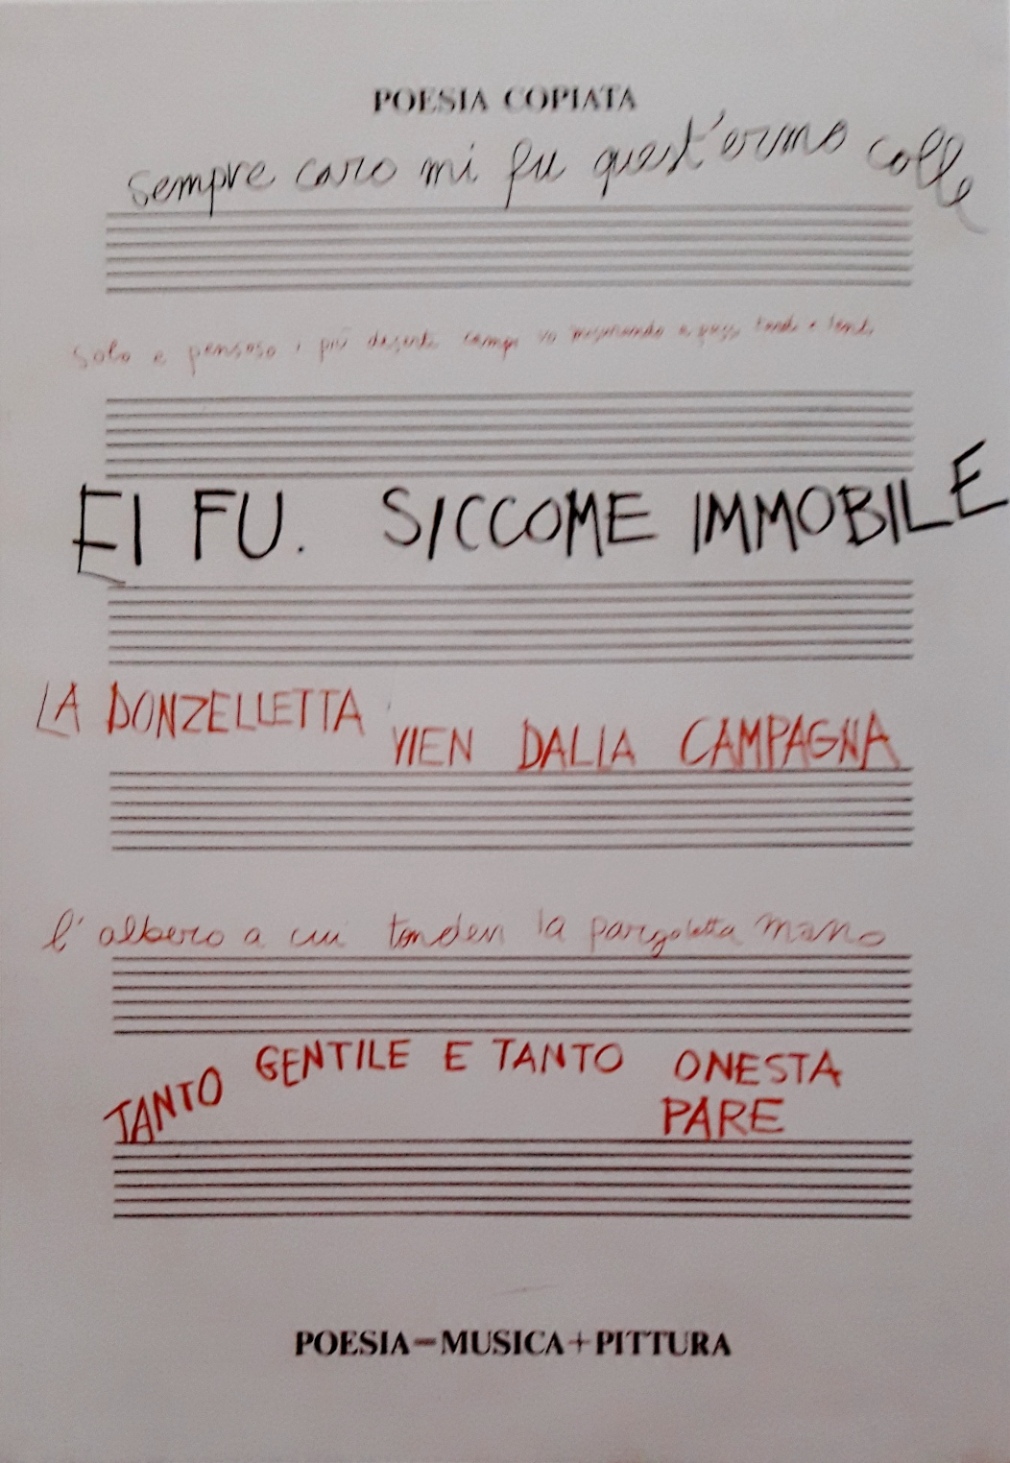 POESIA COPIATA
sempre caro mi fu quest'ermo colle
solo e pensoso i più deserti campi vo mesurando a passi tardi e lenti
EI FU. SICCOME IMMOBILE
LA DONZELLETTA VIEN DALLA CAMPAGNA
l'albero a cui tendevi la pargoletta mano
TANTO GENTILE E TANTO ONESTA
PARE
POESIA=MUSICA+PITTURA